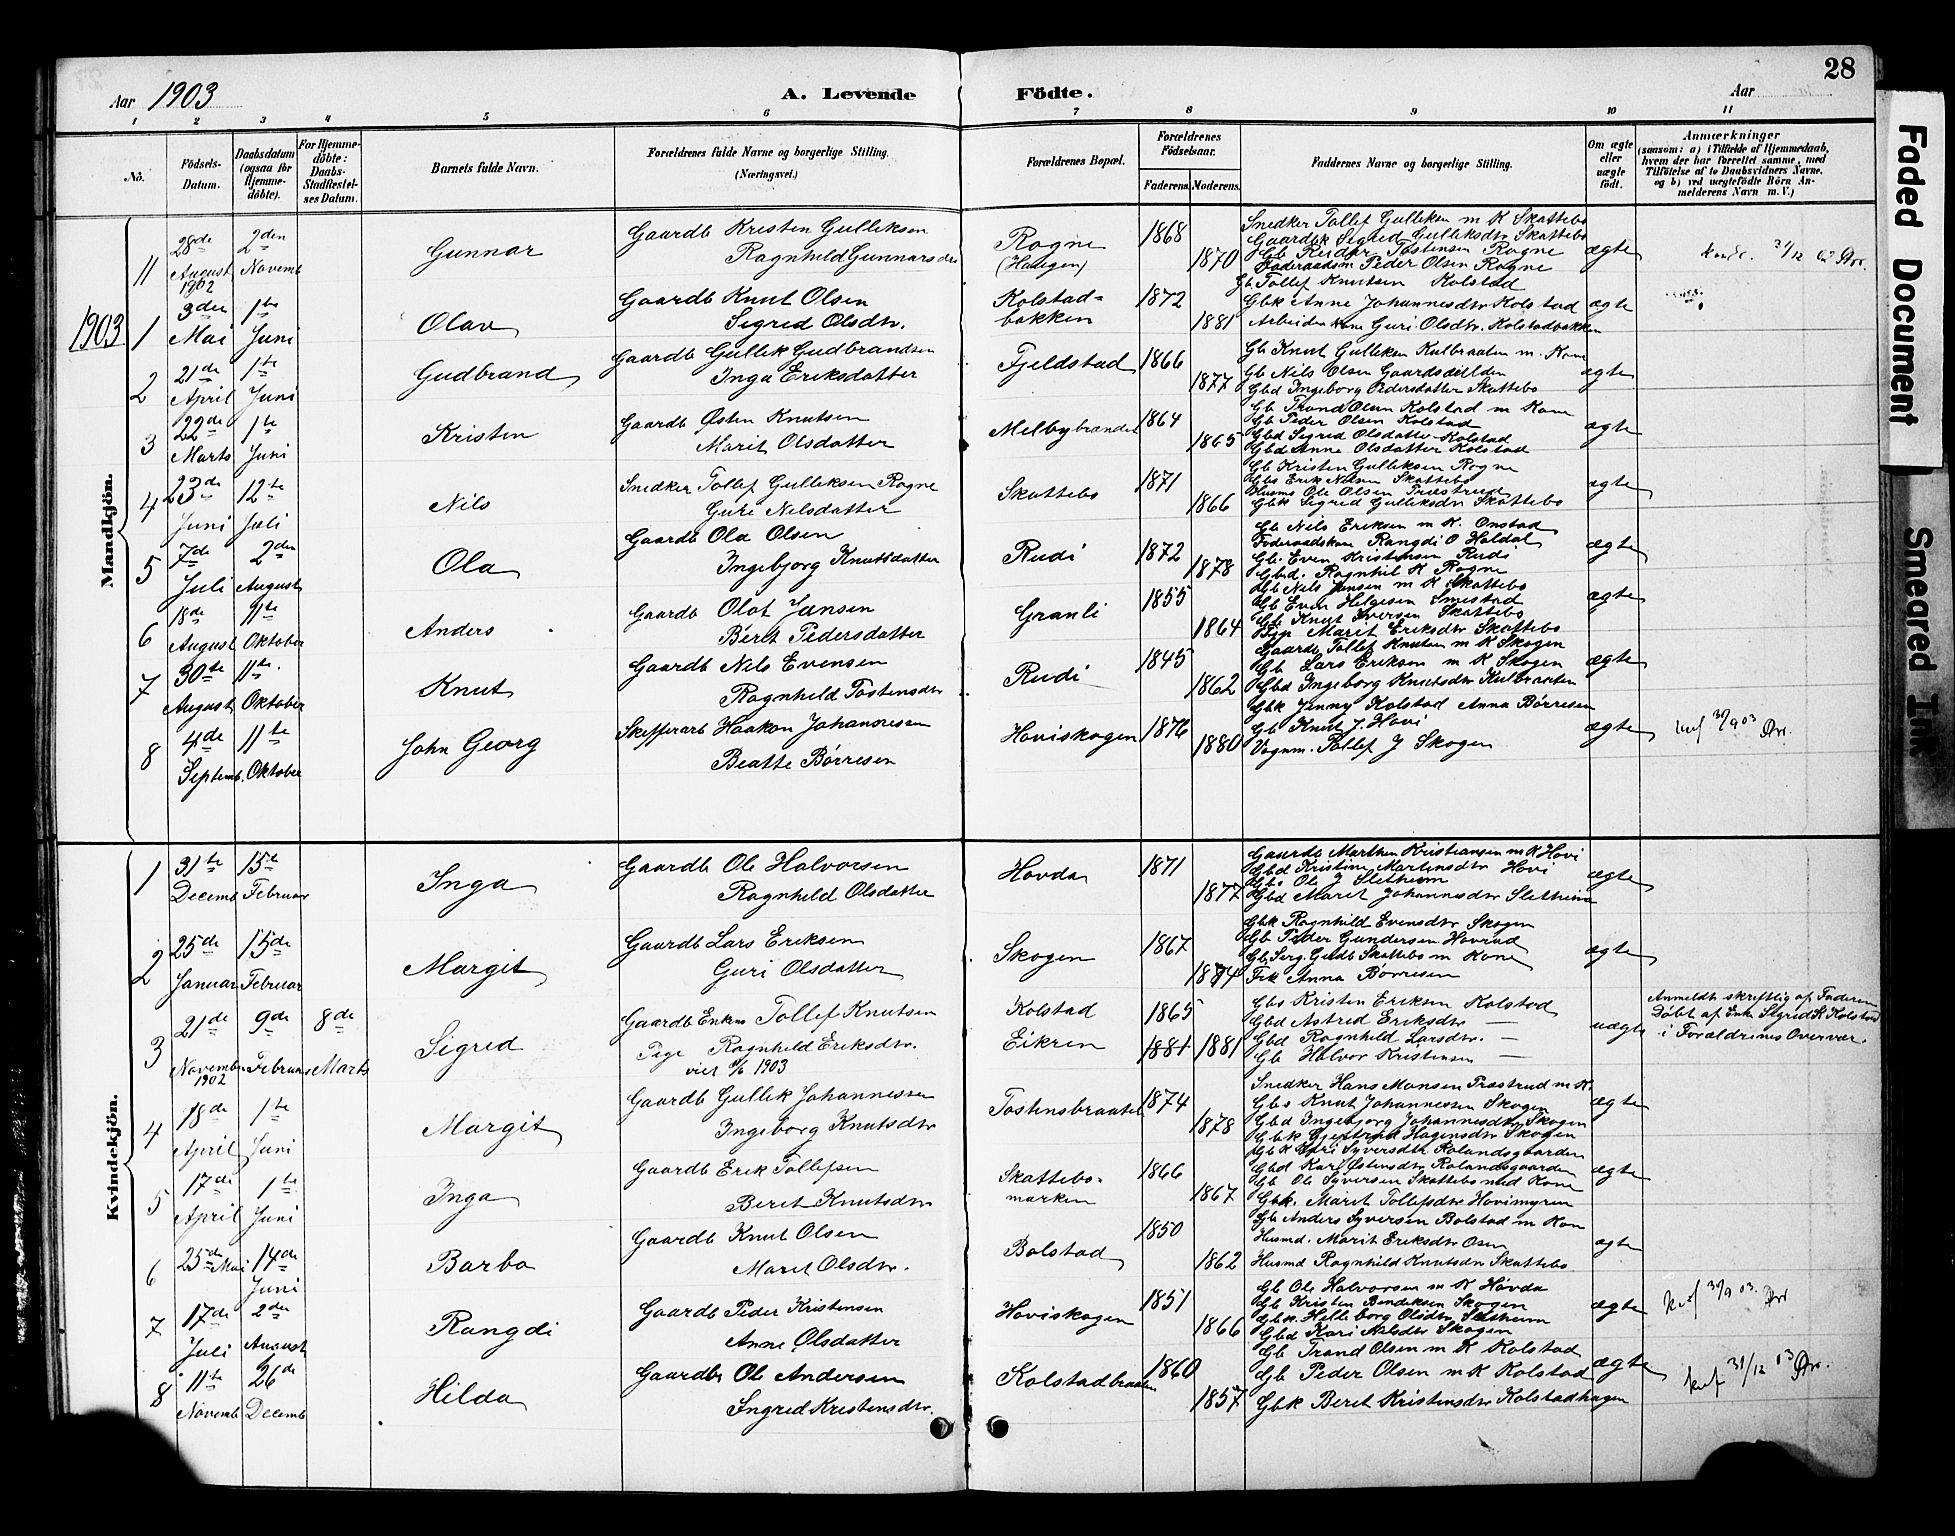 28
Aar 1903
A. Levende Födte.
Aar
1 2 3 4 5 6 7 8 9 10 11
No.
Födsels-Datum.
Daabsdatum (ogsaa for Hjemme-döbte).
For Hjemme-döbte: Daabs-Stadfæstel-ses Datum.
Barnets fulde Navn.
Forældrenes fulde Navne og borgerlige Stilling.
(Næringsvei.)
Forældrenes Bopæl.
Forældrenes Födselsaar.
Faderens. Moderens.
Faddernes Navne og borgerlige Stilling.
Om ægte eller uægte födt.
Anmærkninger
(saasom: a) i Tilfælde af Hjemmedaab,
hvem der har forrettet samme, med
Tilföielse af to Daabsvidners Navne,
og b) ved uægtefödte Börn An-
melderens Navn m. V.)
Mandkjön.
11 28de August 1902 2den Novemb Gunnar Gaardb Kristen Gulliksen
Ragnhild Gunnarsdtr
Rogne (Haugen) 1868 1870
Snedker Tollef Gulliksen m K Skattebo
Gaardbk Sigrid Gulliksdtr Skattebo
Gb Reidar Tostensen Rogne
Føderaadsm Peder Olsen Rogne
ægte
1903
1 3die Mai 1te Juni Olav Gaardb Knut Olsen
Sigrid Olsdtr.
Kolstad=bakken 1872 1881
Gb Tollef Knutsen Kolstad
Gbk Anne Johannesdtr Kolstad
Arbeider Kone Guri Olsdtr. Kolstadbakken
ægte
2 21de April 1te Juni Gudbrand Gaardb Gullik Gudbrandsen
Inga Eriksdatter
Fjeldstad 1866 1877
Gb Knut Gulliksen Kulbraaten m. Kone
Gb Nils Olsen
Gbd Ingeborg Pedersdatter Skattebo
ægte
3 22de Marts 1te Juni Kristen Gaardb Østen Knutsen
Marit Olsdatter
Melbybrænden 1864 1865
Gb Trond Olsen Kolstad m Kone
Gb Peder Olsen Kolstad
Gbd Sigrid Olsdatter Kolstad
Gbd Anne Olsdatter Kolstad
ægte
4 23de Juni 12te Juli Nils Snedker Tollef Gulliksen Rogne
Guri Nilsdatter
Skattebo 1871 1866
Gb Kristen Gulliksen Rogne
Gbs Erik Nilsen Skattebo
Husmd Ole Olsen Præstrud
Gbk Sigrid Gulliksdtr Skattebo
ægte
5 7de Juli 2den August Ola Gaardb Ola Olsen
Ingebjorg Knutsdatter
Rudi 1872 1878
Gb Nils Eriksen m K. Onstad
Føderaadskone Rangdi O Heldal
Gb. Even Kristensen Rudi
Gbd. Ragnhil K Rogne
ægte
6 18de August 11te Oktober Anders Gaardb Olof Jansen
Berit Pedersdatter
Granli 1855 1864
Gb Nils Jensen m K Skattebo
Gb Even Helgesen Smestad
Gb Knut Iversen Skattebo
Marit Eriksdtr Skattebo
ægte
7 30te August 11te. Oktober Knut Gaardb Nils Evensen
Ragnhild Tostensdtr
Rudi 1845 1862
Gaardb Tollef Knutsen m K Skogen
Gb Lars Eriksen m K Skogen
Gbd Ingeborg Knutsdtr Kulbraaten
ægte
8 4de Septemb. 11te Oktober John Georg Skifferarb Haakon Johannessen
Beatte Børresen
Hoviskogen 1876 1880
Gbk Jenny Kolstad Anna Børresen
Gb Knut J. Hovi
Vognm. Tollef J Skogen
ægte
Kvindekjön.
1 31te Decemb 15te Februar Inga Gaardb Ole Halvorsen
Ragnhild Olsdatter
Hovda 1871 1877
Gaardb Marthen Kristiansen m K Hovi
Gbd Kristine Martinsdtr Hovi
Gbs Ole J Sletheim
Gbd Marit Johannesdtr Sletheim
ægte
2 25de Januar 15de Februar Margit Gaardb Lars Eriksen
Guri Olsdatter
Skogen 1867 1874
Gbk Ragnhild Evensdtr Skogen
Gb Peder Gundersen Hovrud
Gb. Serg. Gudb Skattebo m Kone
Frk Anna Børresen
ægte
3 21de November 1902 9de Februar 8de Marts Sigrid Gaardb Enkem Tollef Knutsen
Pige Ragnhild Eriksdtr.
viet 1903
Kolstad
Eikren
1865
1881 1881
Gbs Kristen Eriksen Kolstad
Gbd Astrid Eriksdtr —
Gbd Ragnhild Larsdtr. —
Gb Halvor Kristensen —
uægte
Anmeldt skriftlig af Faderen
Døbt af Enke Sigrid K Kolstad
i Forældrenes Overvær.
4 18de April 1te Juni Margit Gaardb Gullik Johannessen
Ingeborg Knutsdtr
Tostensbraaten 1874 1878
Snedker Hans Monsen Præstrud m K.
Gbs Knut Johannessen Skogen
Gbd Ingebjorg Johannesdtr Skogen
Gbk Gjertrud Hagensdtr Skogen
ægte
5 17de April 1te Juni Inga Gaardb Erik Tollefsen
Berit Knutsdtr
Skattebo=marken 1866 1867
Gbk Kari Syversdtr Rolandsgaarden
Gbd Kari Østensdtr Rolandsgaarden
Gb Ole Syversen Skattebo med Kone
Gbk. Marit Tollefsdtr Hovimyren
ægte
6 25de Mai 14de Juni Barbo Gaardb Knut Olsen
Marit Olsdtr.
Bolstad 1850 1862
Gb Anders Syversen Bolstad m Kone
Husmd. Marit Eriksdtr Osen
Husmd Ragnhild Knutsdtr Skattebo
ægte
7 17de Juli 2den August Rangdi Gaardb Peder Kristensen
Anne Olsdatter
Hoviskogen 1851 1866
Gb Ole Halvorsen m K Hovda
Gb Kristen Bendiksen Skogen
Gbk. Helleborg Olsdtr Sletheim
Gbd Kari Nilsdtr Skogen
ægte
8 11te Novemb 26de Decemb Hilda Gaardbr Ole Andersen
Ingrid Kristensdtr.
Kolstadbraaten 1860 1857
Gb Trond Olsen m K Kolstad
Gb Peder Olsen m K Kolstad
Gbk Berit Kristensdtr Kolstadhagen
ægte
Faded Document
Smeared Ink